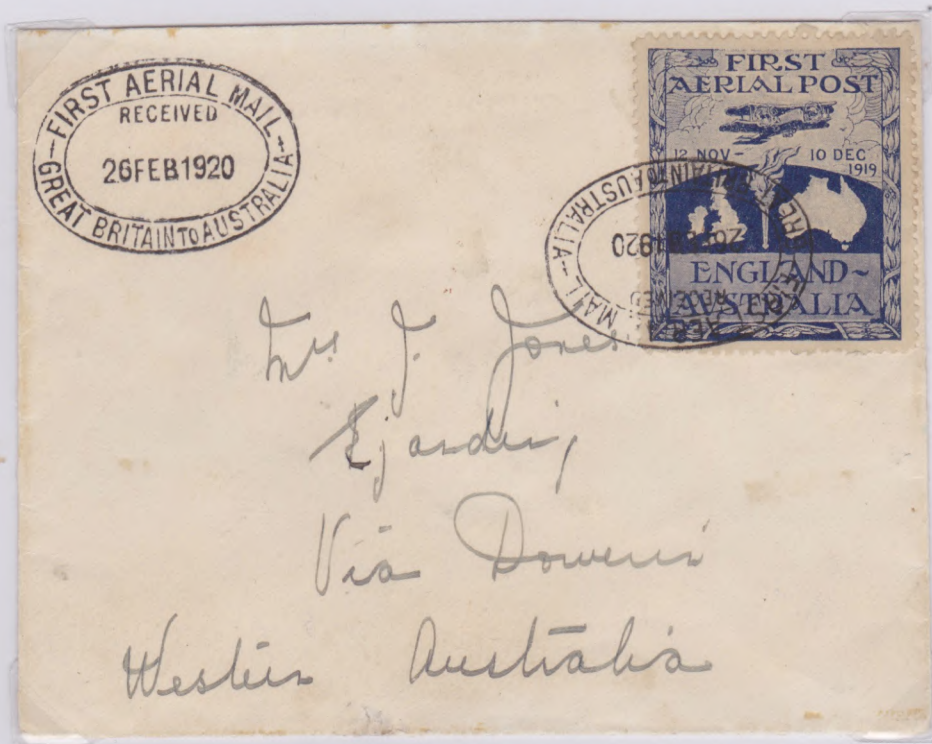 FIRST AERIAL MAIL
RECEIVED
26FEB1920
GREAT BRITAIN TO AUSTRALIA
FIRST
AERIAL POST
12 NOV - 10 DEC
1919
ENGLAND ~
AUSTRALIA
MAIL
RECEIVED
1920
BRITAIN TO AUSTRALIA
Mrs J. Jones
Ejanding
Via Dowerin
Western Australia